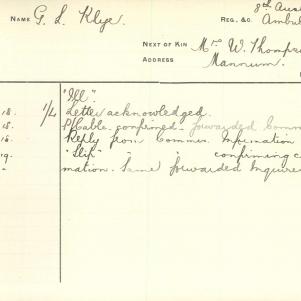 NAME G. L. Klye. REG., &C. 8th Aus
Ambul
NEXT OF KIN Mr W. Thomps
ADDRESS Mannum.
"Ill".
18. 1/4 Letter acknowledged.
15. P/Cable confirmed. forwarded Comm
16. Reply from Commr. Information
19. "Slip" " " confirming c
" mation. Same forwarded Inquire